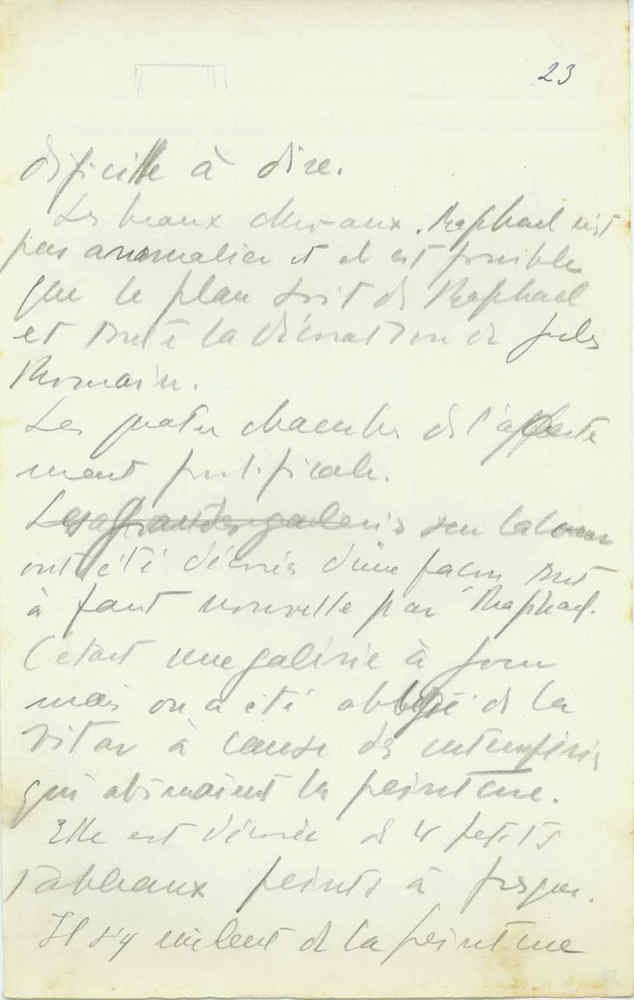 23
difficille à dire.
Les beaux chevaux. Raphael n'est
pas animalier et il est possible
que le plan soit de Raphael
et toute la décoration de Jules
Romain.
Les quatre chambres de l'apparte
ment pontificale.
Les grandes galeries sur la cour
ont été décorées d'une façon tout
à fait nouvelle par Raphael.
C'était une galerie à jour
mais on a été obligé de la
vitrer à cause des intempéries
qui abimaient la peinture.
Elle est décorée de 4 petits
tableaux peints à fresque.
Il s'y de la peinture